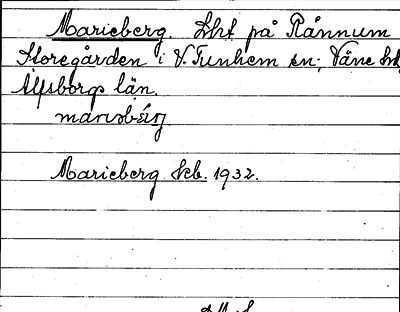 Marieberg. Lht på Rånnum
Storegården i V. Tunhem sn; Väne hd
Älfsborgs län.
Marieberg kb. 1932.